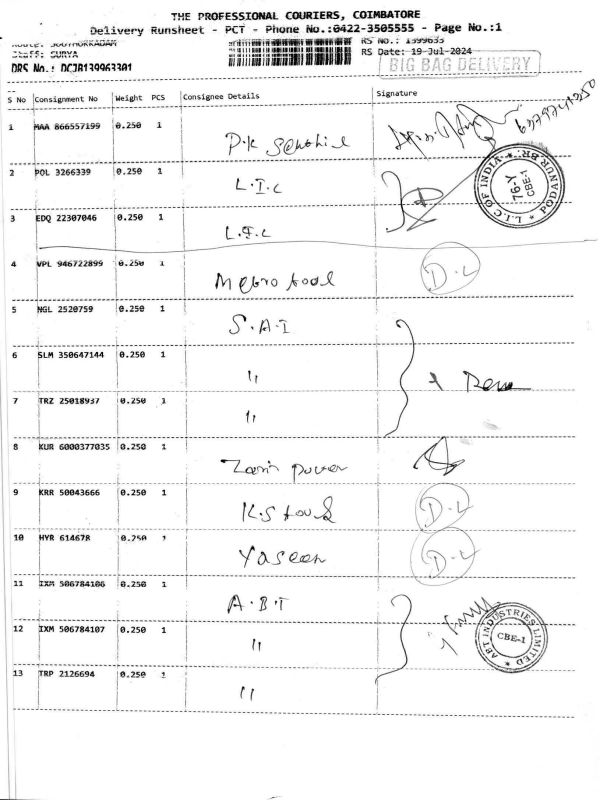 THE PROFESSIONAL COURIERS, COIMBATORE
Delivery Runsheet - PCT - Phone No.:0422-3505555 - Page No.:1
Route: SOUTHUKKADAM RS No.: 1399633
Staff: SURYA RS Date: 19-Jul-2024
DRS No.: DCJB139963301 BIG BAG DELIVERY
S No Consignment No Weight PCS Consignee Details Signature
1 MAA 866557199 0.250 1 P.K
2 POL 3266339 0.250 1 L.I.C
3 EDQ 22307046 0.250 1 L.I.C
L.I.C OF INDIA PODANUR BR. 76-Y CBE-1
4 VPL 946722899 0.250 1 Metro tool D.L
5 NGL 2520759 0.250 1 S.A.I
6 SLM 350647144 0.250 1 "
7 TRZ 25018937 0.250 1 "
8 KUR 6000377035 0.250 1 power
9 KRR 50043666 0.250 1 K.S D.L
10 HYR 614678 0.250 1 Yaseen D.L
11 IXM 506784106 0.250 1 A.B.T
12 IXM 506784107 0.250 1 "
INDUSTRIES LIMITED CBE-1
13 TRP 2126694 0.250 1 "